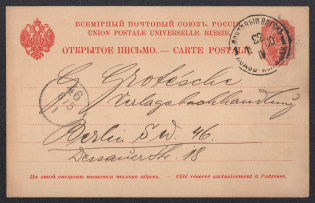 ВСЕМІРНЫЙ ПОЧТОВЫЙ СОЮЗЪ. РОССІЯ.
UNION POSTALE UNIVERSELLE. RUSSIE.
ОТКРЫТОЕ ПИСЬМО. — CARTE POSTALE.
ПОЧТОВЫЙ ВАГОНЪ
G. Grote'sche
Verlagsbuchhandlung
Berlin S.W. 46.
Dessauer Str. 18
На этой сторонѣ пишется только адресъ. — Côté réservé exclusivement à l'adresse.